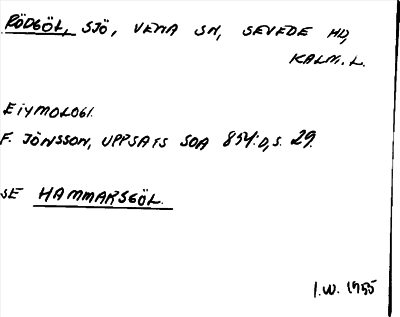 RÖDGÖL, SJÖ, VENA SN, SEVEDE HD,
KALM. L.
ETYMOLOGI.
F. JÖNSSON, UPPSATS SOA 854:D, S. 29.
SE HAMMARSGÖL.
I.W. 1955